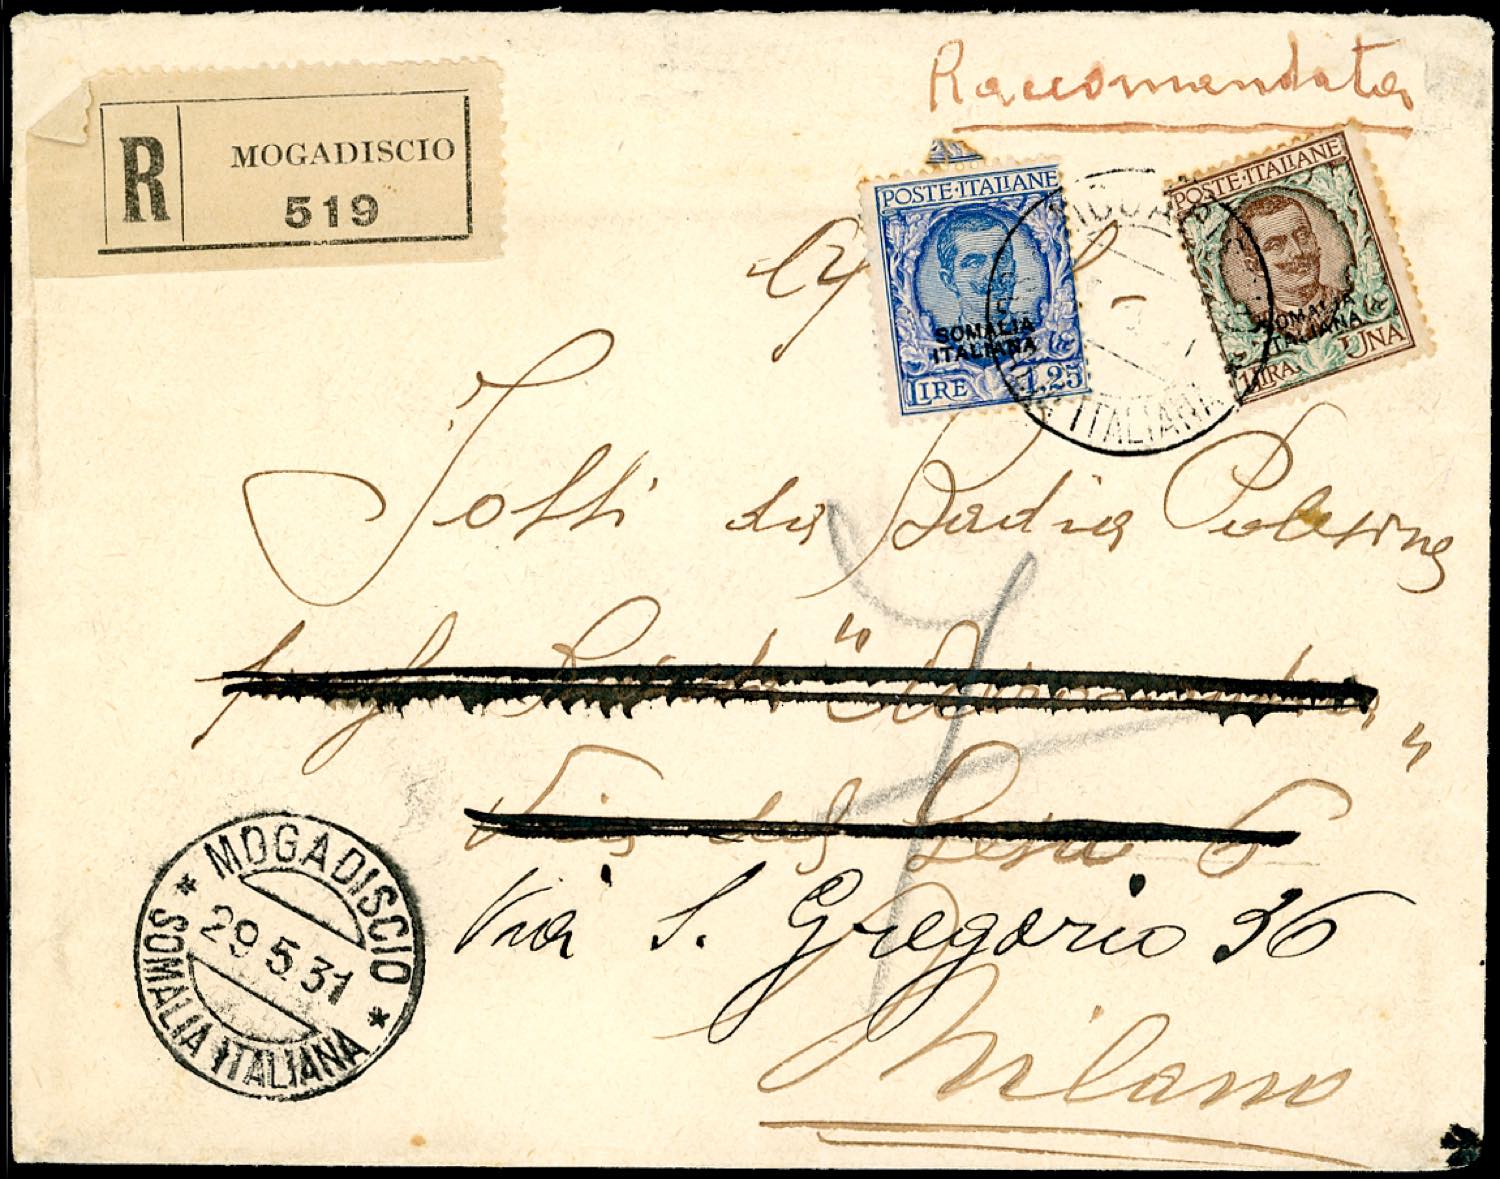 Raccomandata
R
MOGADISCIO
519
POSTE·ITALIANE
SOMALIA
ITALIANA
LIRE 1.25
POSTE·ITALIANE
SOMALIA
ITALIANA
LIRA UNA
ITALIANA
da Badia Polesine
"
"
Via del 6
Via S. Gregorio 36
Milano
MOGADISCIO
29.5.31
SOMALIA ITALIANA